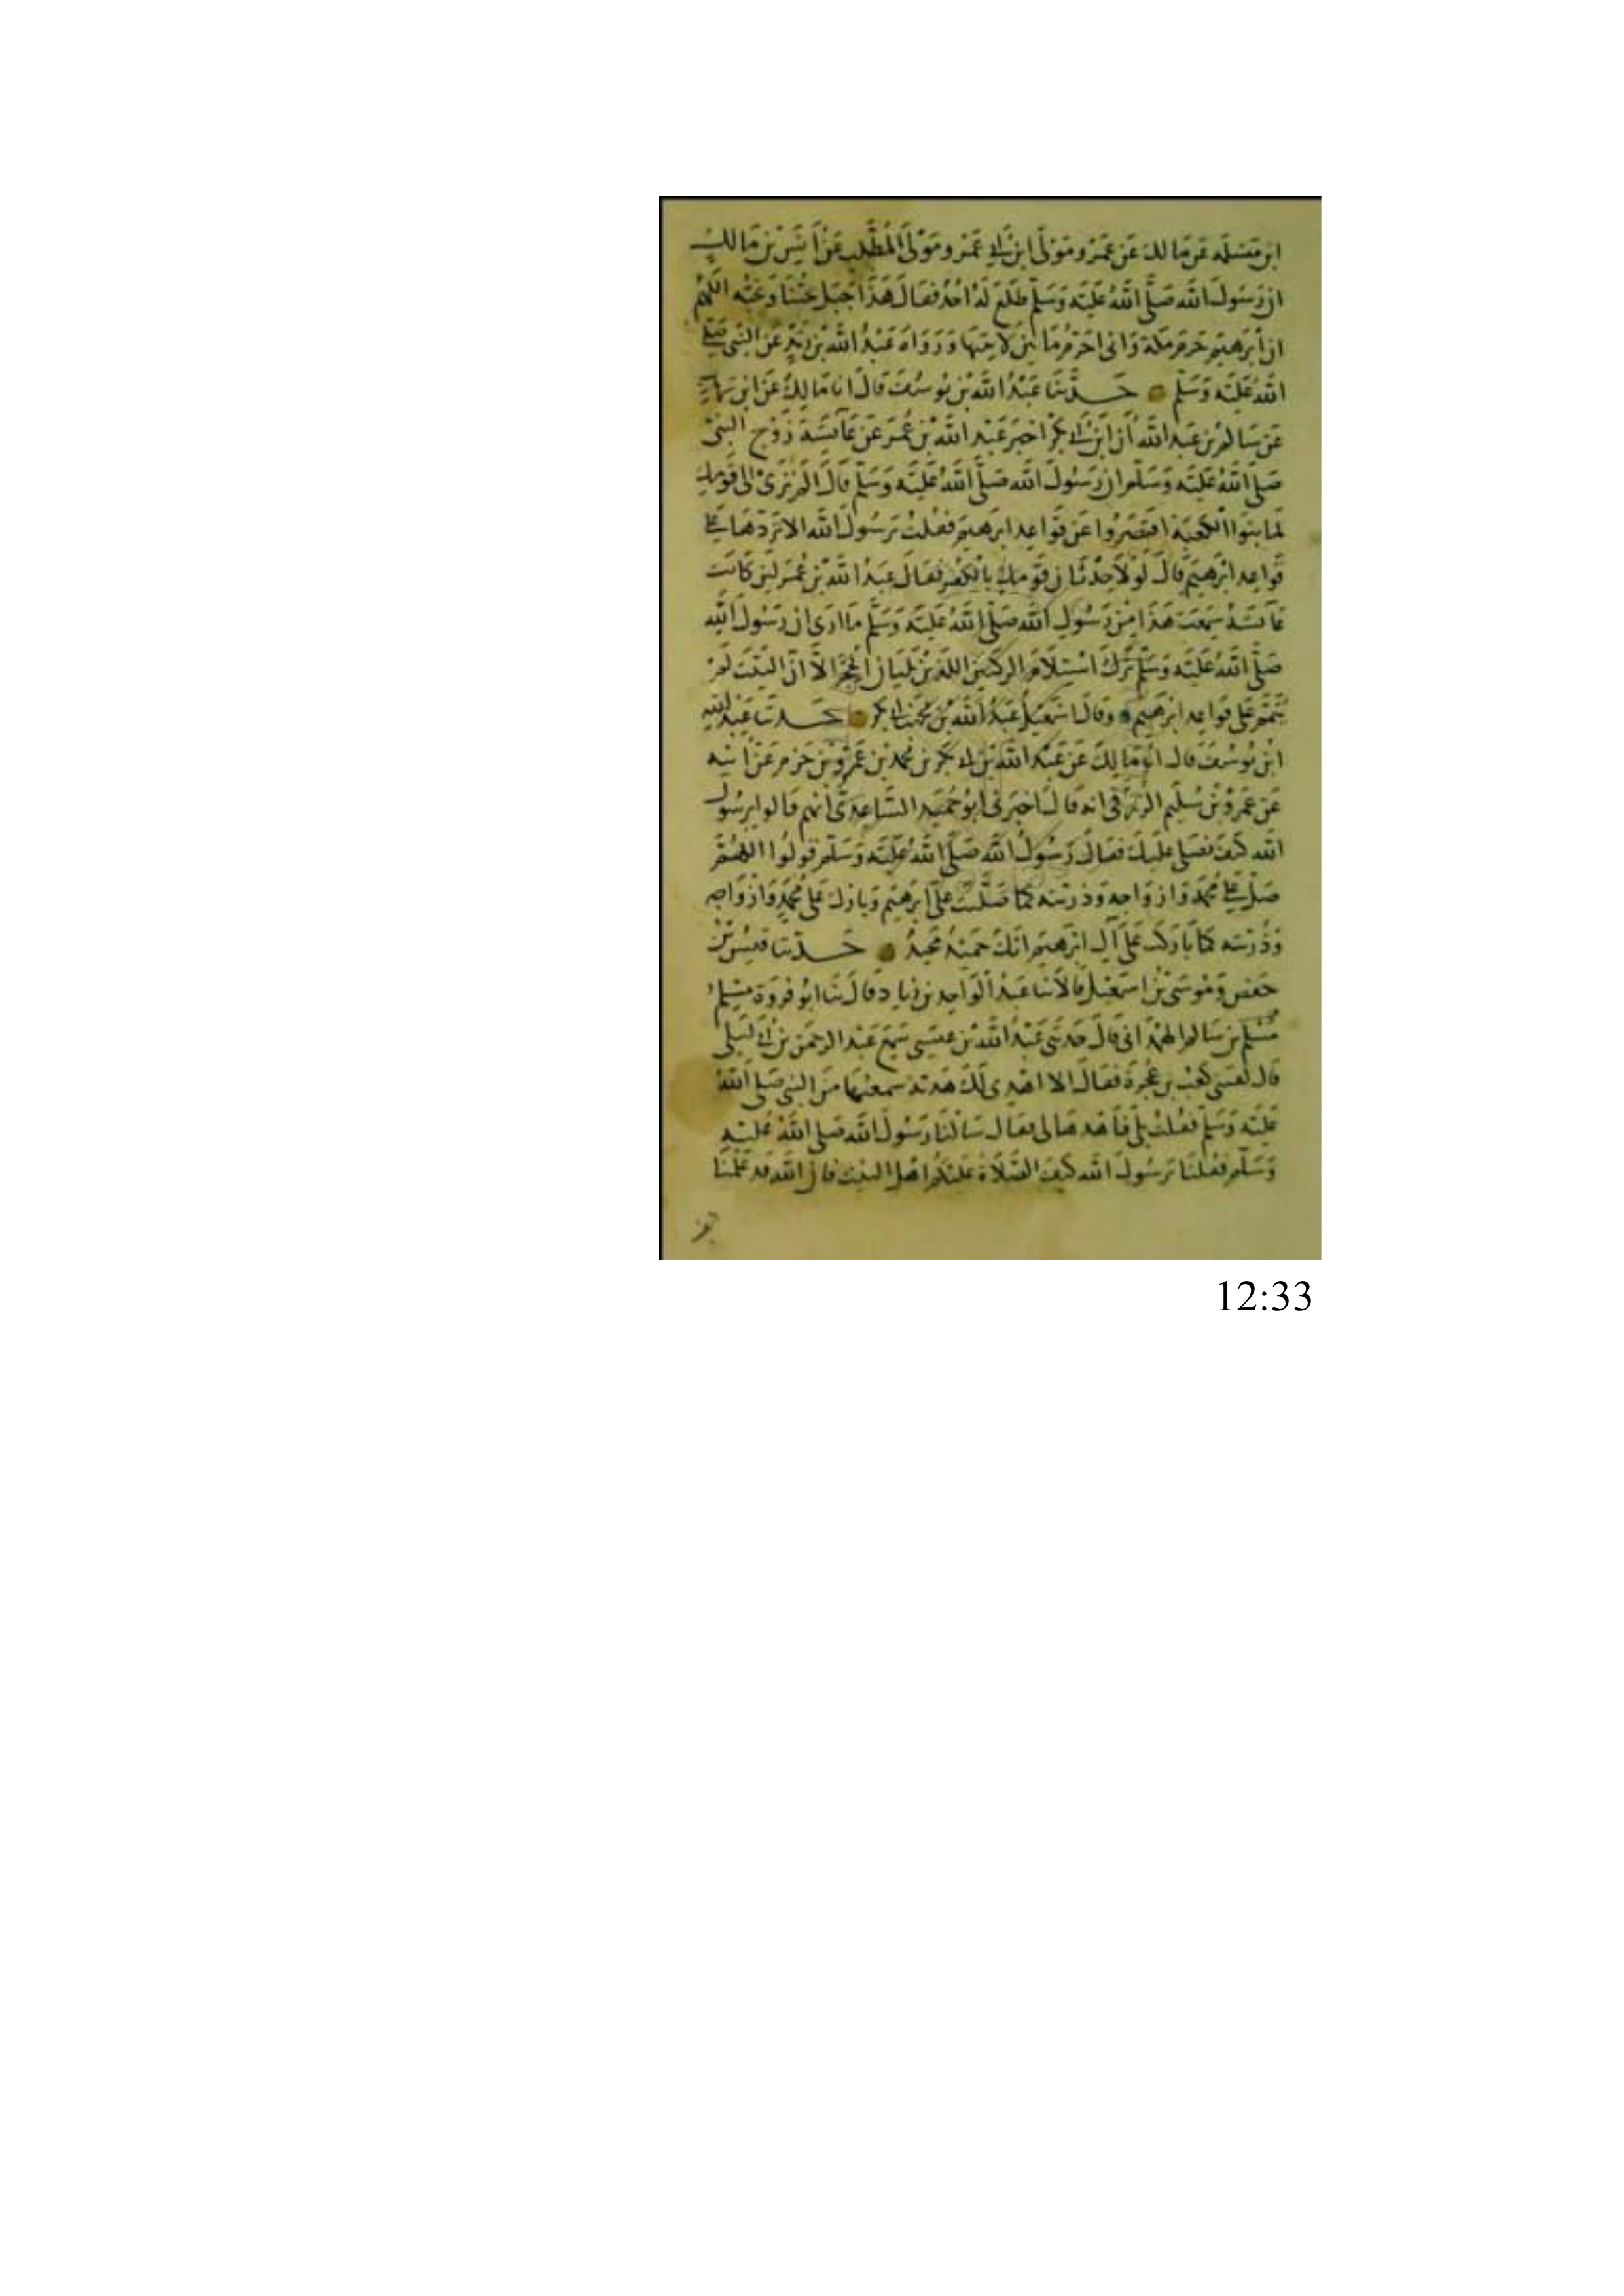 ابن مسلمه عن مالك عن عمرو مولى ابن ابي عمرو مولى المطلب عن انس بن مالك
ان رسول الله صلى الله عليه وسلم طلع له احد فقال هذا جبل يحبنا ونحبه اللهم
ان ابرهيم حرم مكة واني احرم ما بين لابتيها ورواه عبد الله بن زيد عن النبي صلى
الله عليه وسلم حدثنا عبد الله بن يوسف قال انا مالك عن ابن شهاب
عن سالم بن عبد الله ان ابن ابي بكر اخبر عبد الله بن عمر عن عائشة زوج النبي
صلى الله عليه وسلم ان رسول الله صلى الله عليه وسلم قال الم تري الى قومك
لما بنوا الكعبة اقتصروا عن قواعد ابرهيم فقلت يرسول الله الا تردها على
قواعد ابرهيم قال لولا حدثان قومك بالكفر فقال عبد الله بن عمر لئن كانت
عائشة سمعت هذا من رسول الله صلى الله عليه وسلم ما ارى ان رسول الله
صلى الله عليه وسلم ترك استلام الركنين اللذين يليان الحجر الا ان البيت لم
يتمم على قواعد ابرهيم وقال اسمعيل عبد الله بن ابي بكر حدثنا عبد الله
ابن يوسف قال انا مالك عن عبد الله بن ابي بكر بن محمد بن عمرو بن حزم عن ابيه
عن عمرو بن سليم الزرقي انه قال اخبرني ابو حميد الساعدي انهم قالوا يرسول
الله كيف نصلي عليك فقال رسول الله صلى الله عليه وسلم قولوا اللهم
صل على محمد وازواجه وذريته كما صليت على ابرهيم وبارك على محمد وازواجه
وذريته كما باركت على آل ابرهيم انك حميد مجيد حدثنا قيس بن
حفص وموسى بن اسمعيل قالا ثنا عبد الواحد بن زياد قال ثنا ابو فروة مسلم
مسلم بن سالم الهمداني قال حدثني عبد الله بن عيسى سمع عبد الرحمن بن ابي ليلى
قال لقيني كعب بن عجرة فقال الا اهدي لك هدية سمعتها من النبي صلى الله
عليه وسلم فقلت بلى فاهدها لي فقال سالنا رسول الله صلى الله عليه
وسلم فقلنا يرسول الله كيف الصلاة عليكم اهل البيت فان الله قد علمنا
12:33